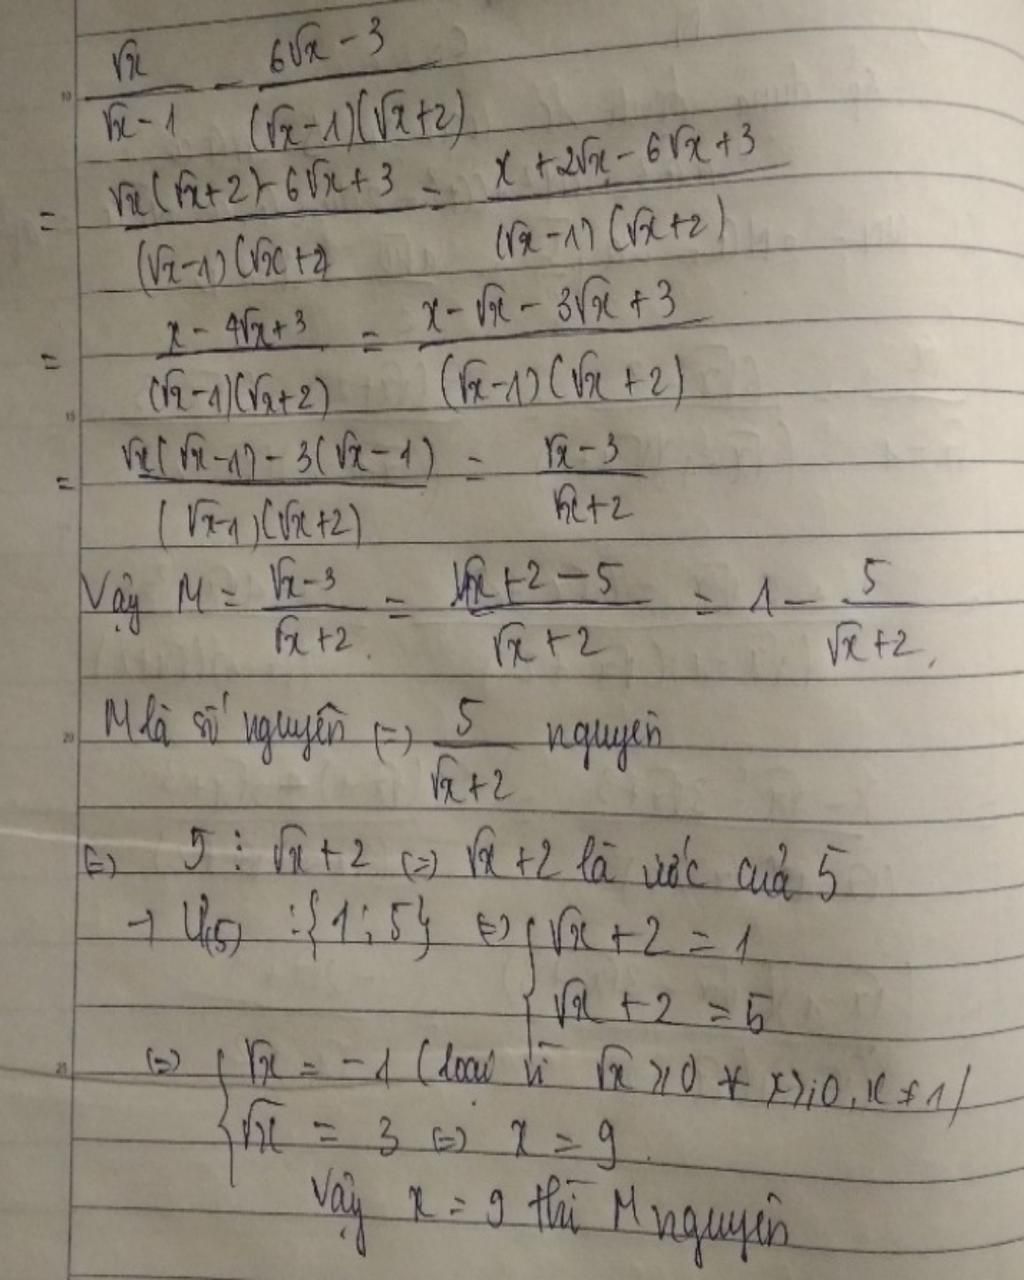 √x/(√x-1) - (6√x-3)/((√x-1)(√x+2))
= (√x(√x+2)-6√x+3)/((√x-1)(√x+2) = (x+2√x-6√x+3)/((√x-1)(√x+2))
= (x-4√x+3)/((√x-1)(√x+2)) = (x-√x-3√x+3)/((√x-1)(√x+2))
= (√x(√x-1)-3(√x-1))/((√x-1)(√x+2)) = (√x-3)/(√x+2)
Vậy M = (√x-3)/(√x+2) = (√x+2-5)/(√x+2) = 1 - 5/(√x+2).
M là số nguyên (=) 5/(√x+2) nguyên
(=) 5 ⋮ √x+2 (=) √x+2 là ước của 5
→ Ư(5) : {1; 5} (=) { √x+2 = 1
√x+2 = 5
(=) { √x = -1 (loại vì √x ⩾ 0 ∀ x ⩾ 0, x ≠ 1)
√x = 3 (=) x = 9.
Vậy x = 9 thì M nguyên
10
15
20
25